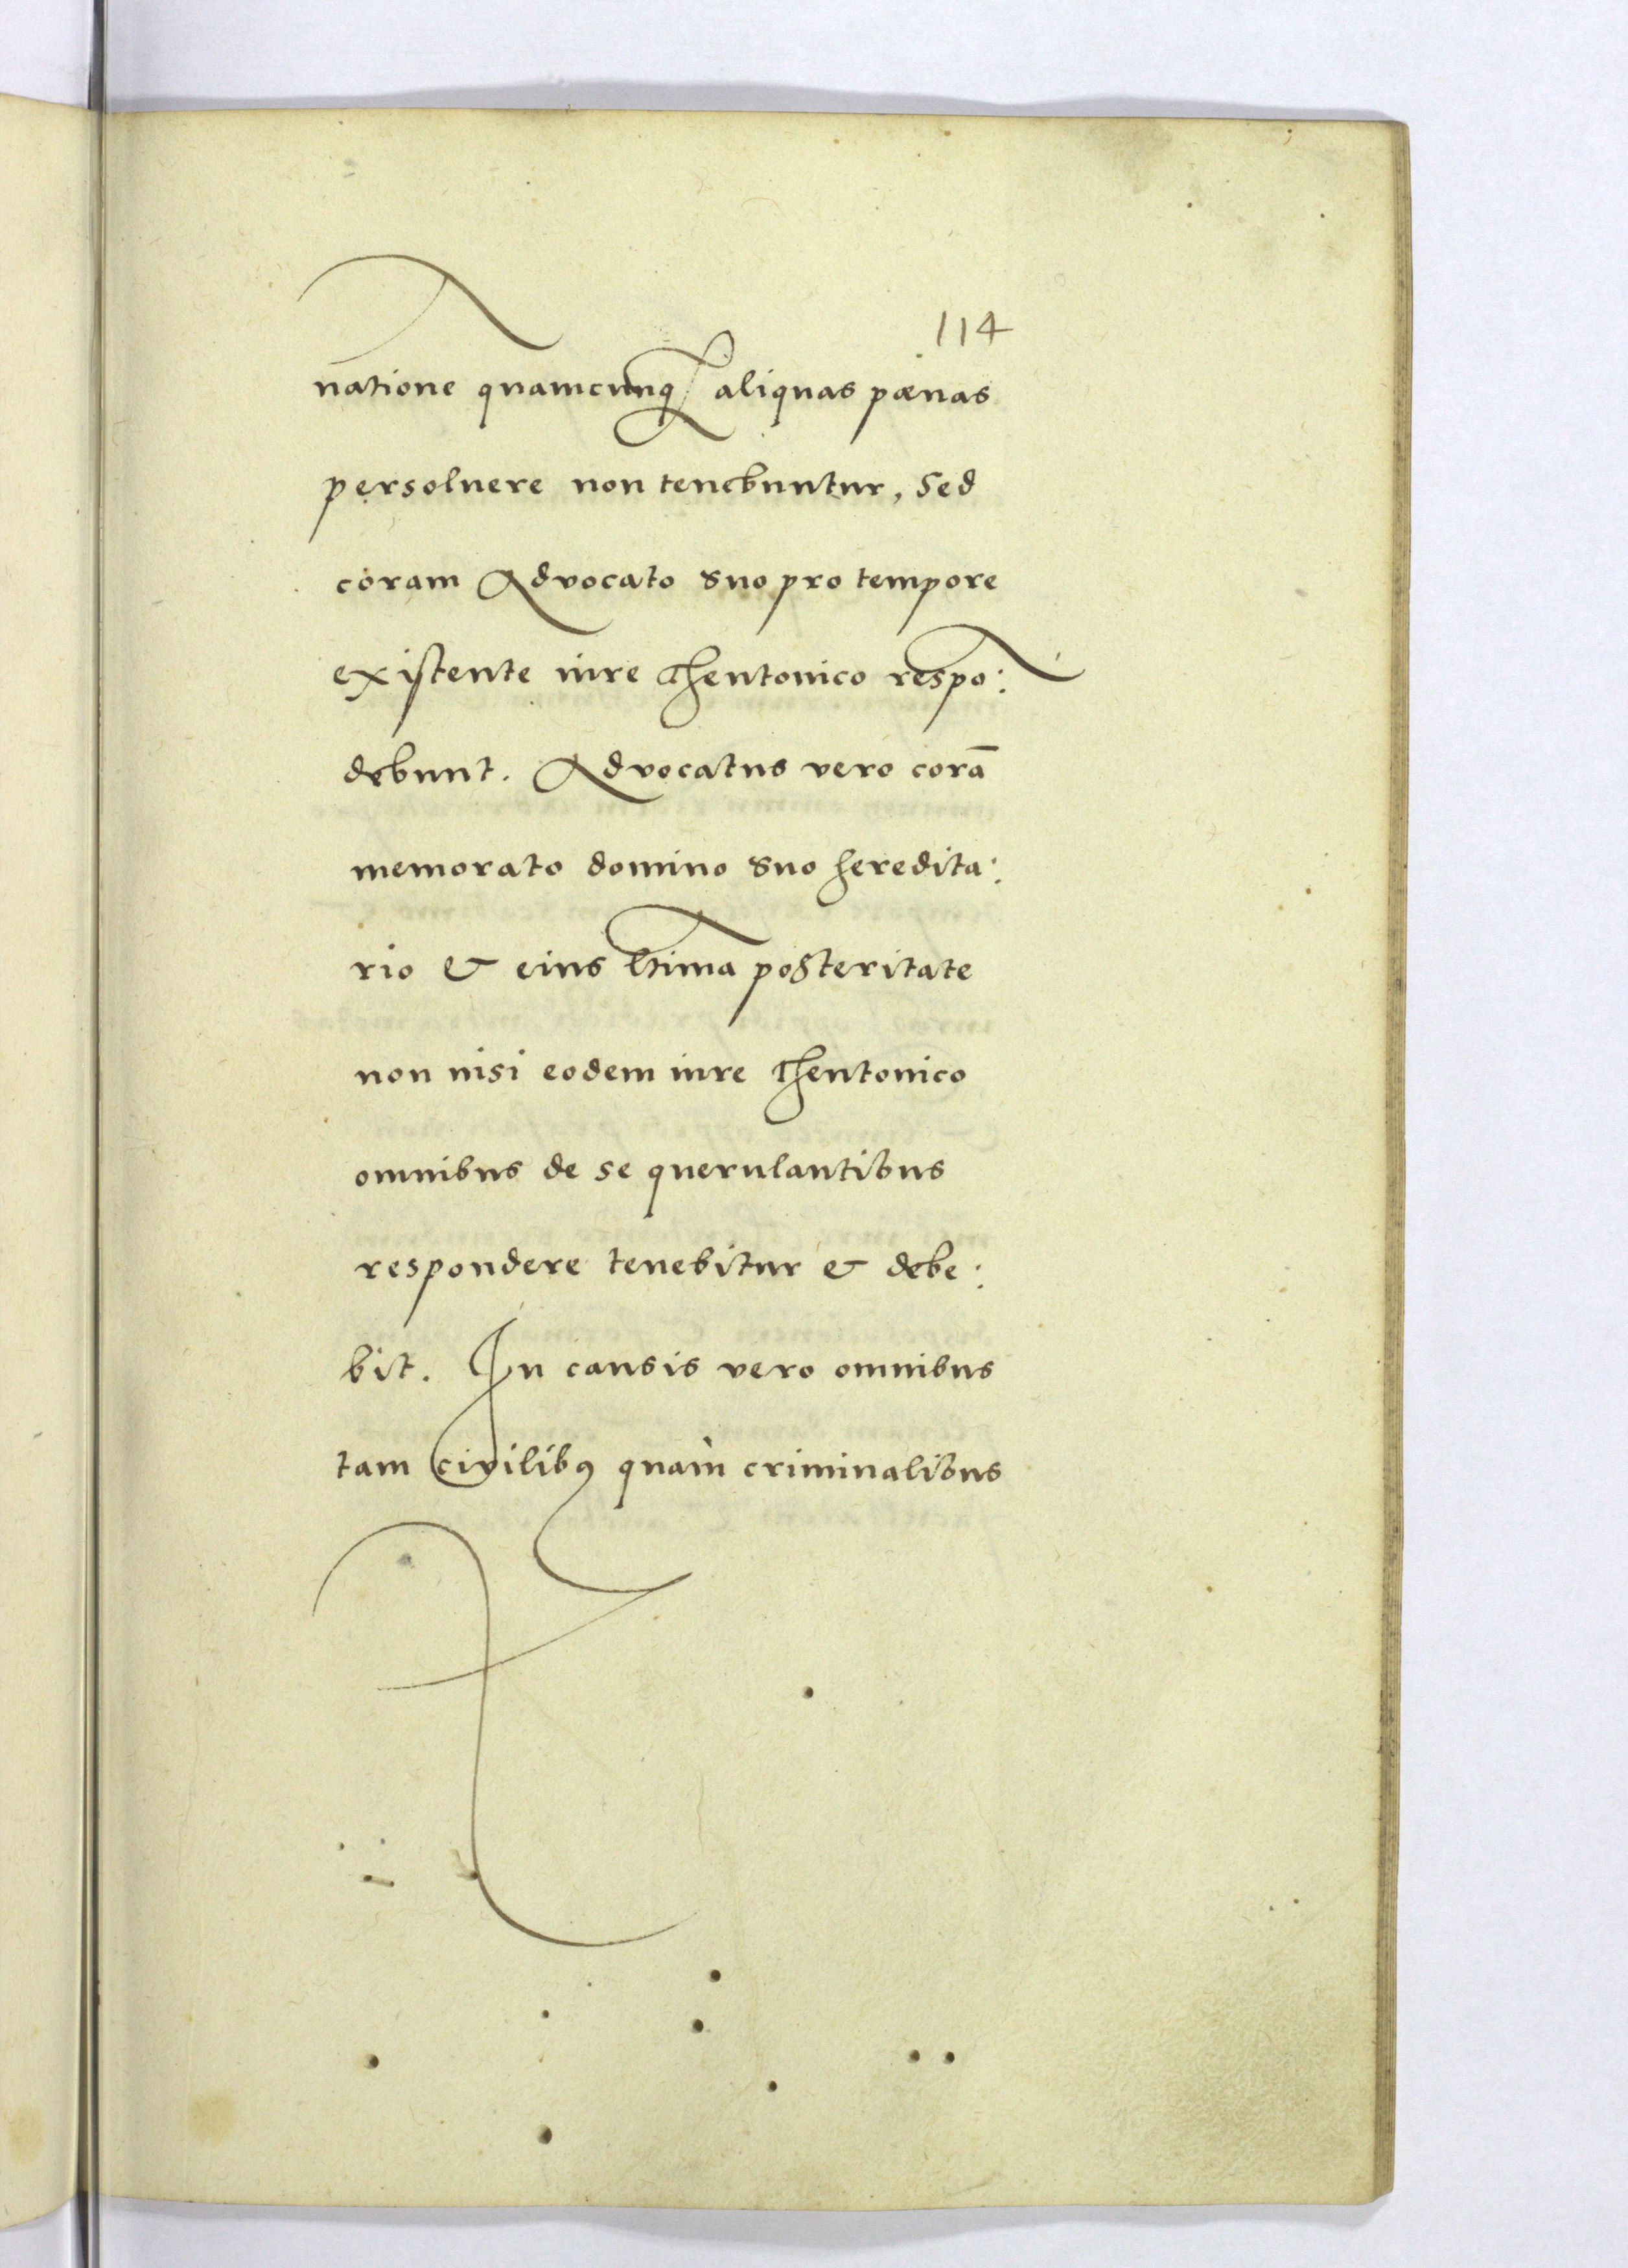 114
natione quamcunq aliquas pœnas
persoluere non tenebuntur, Sed
coram Advocato suo pro tempore
existente iure Theutonico respo:
debunt. Advocatus vero corā
memorato domino suo heredita:
rio & eius ltima posteritate
non nisi eodem iure Theutonico
omnibus de se querulantibus
respondere tenebitur & debe:
bit. In causis vero omnibus
tam civilibꝰ quàm criminalibus